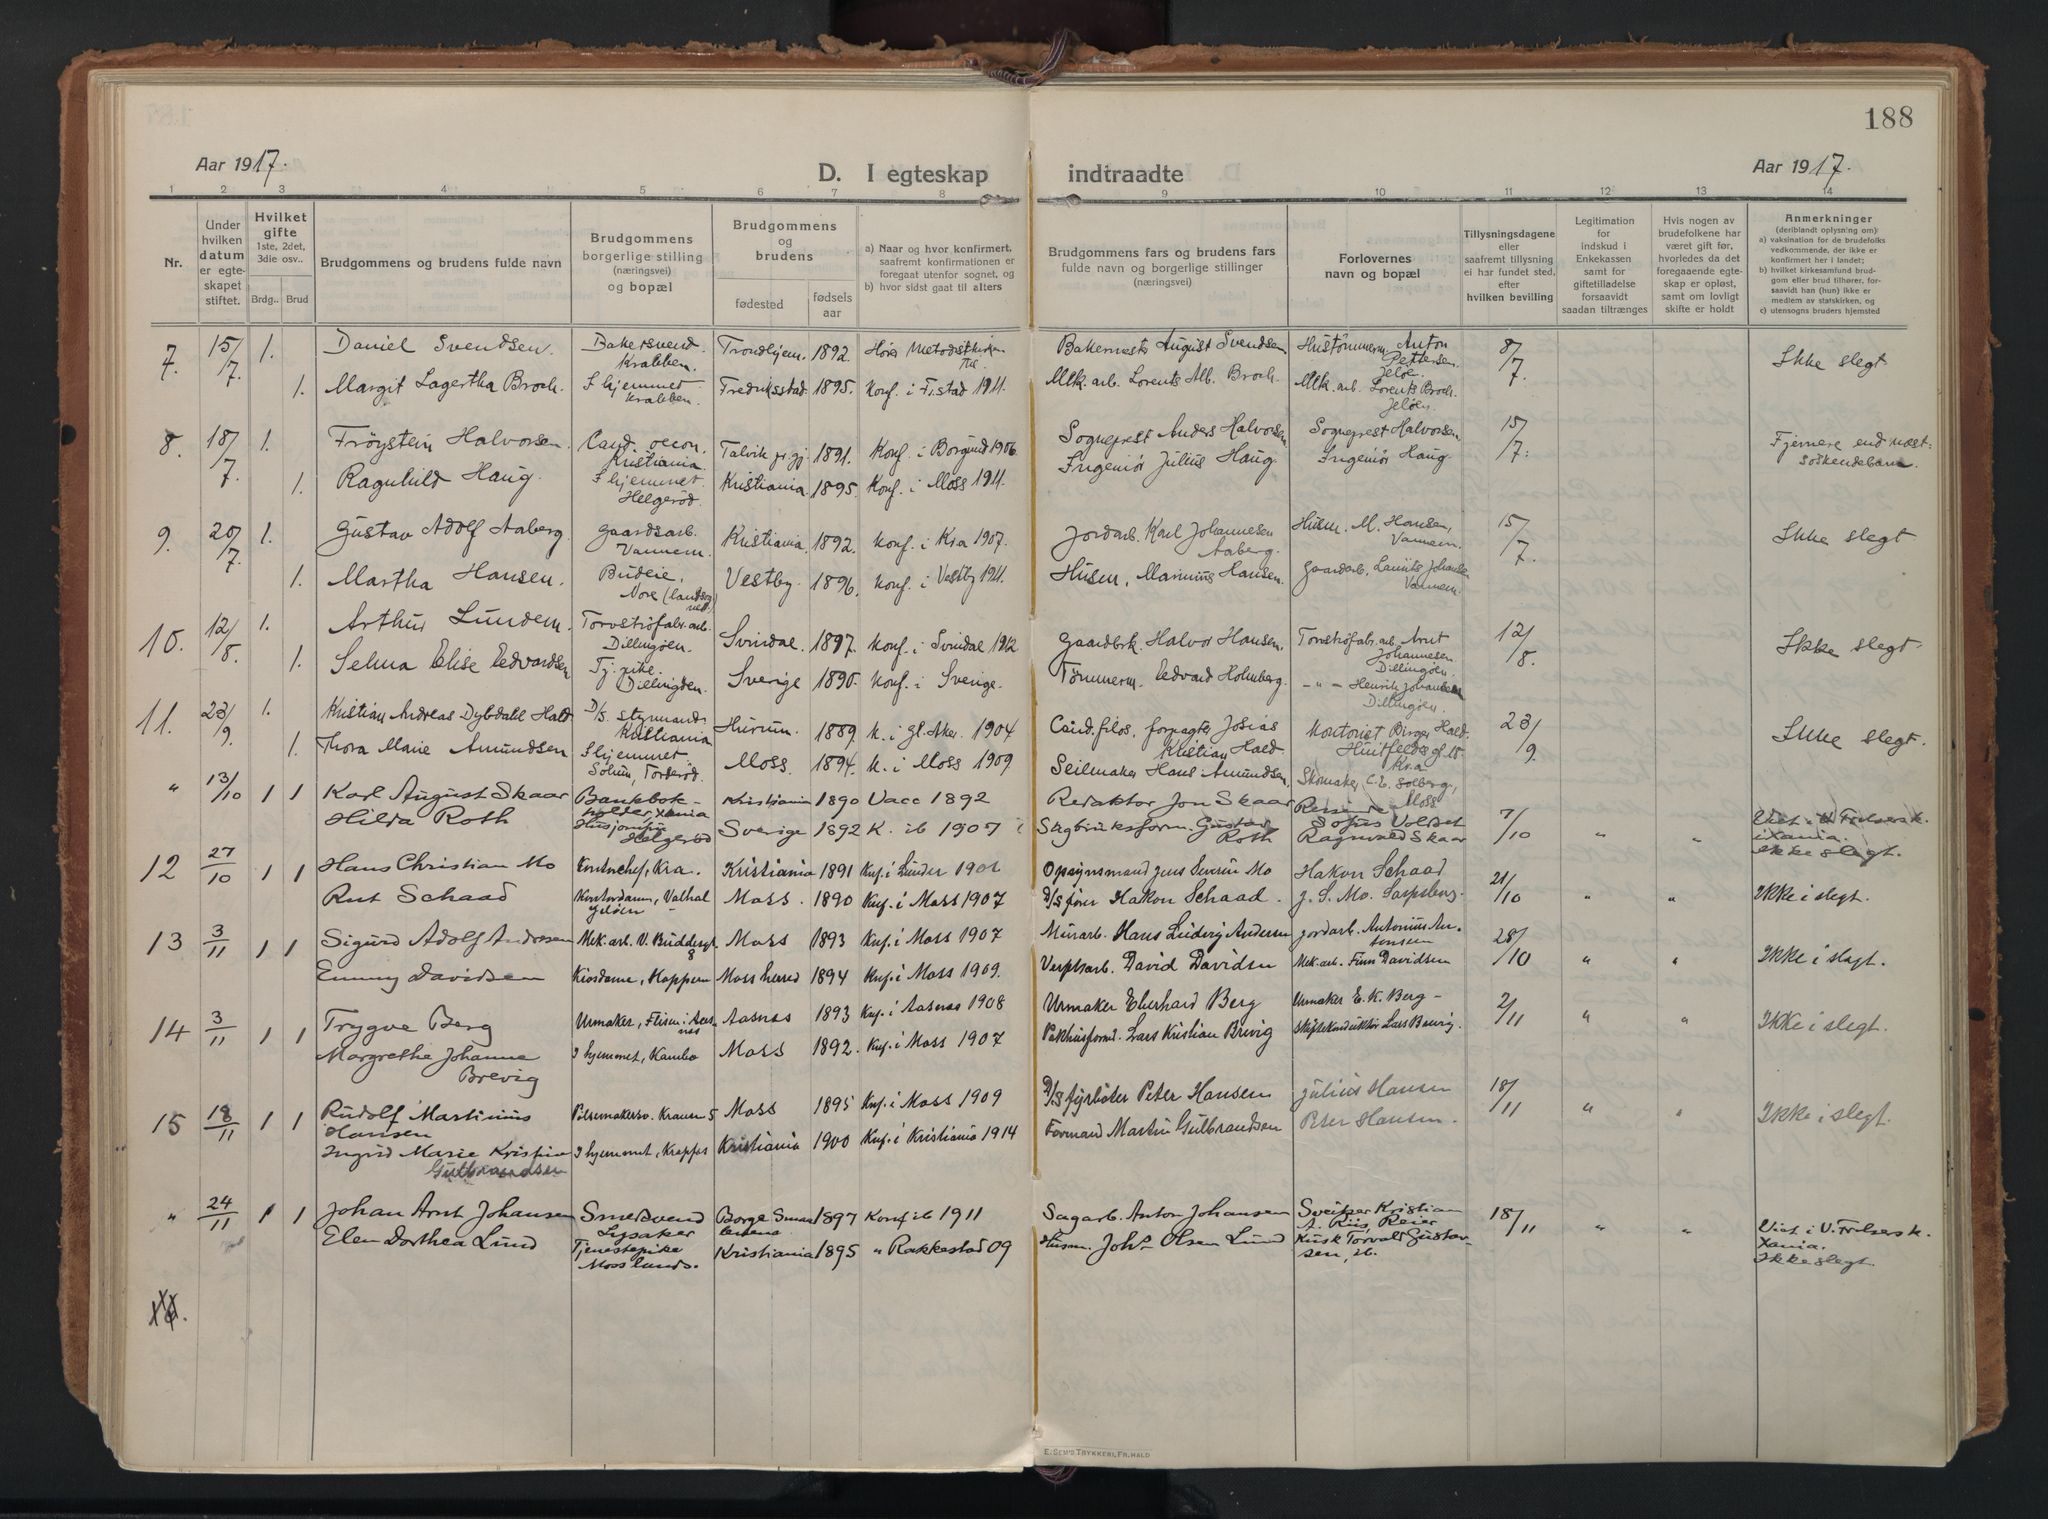 188
Aar 1917.
D. I egteskap
indtraadte
Aar 1917.
1 2 3 4 5 6 7 8 9 10 11 12 13 14
Nr.
Under hvilken datum er egteskapet stiftet.
Hvilket gifte
1ste, 2det, 3die osv..
Brdg.. Brud
Brudgommens og brudens fulde navn
Brudgommens borgerlige stilling
(næringsvei)
og bopæl
Brudgommens
og
brudens
fødested
fødsels aar
a) Naar og hvor konfirmert, saafremt konfirmationen er foregaat utenfor sognet, og
b) hvor sidst gaat til alters
Brudgommens fars og brudens fars
fulde navn og borgerlige stillinger
(næringsvei)
Forlovernes
navn og bopæl
Tillysningsdagene
eller
saafremt tillysning
ei har fundet sted,
efter
hvilken bevilling
Legitimation
for
indskud i
Enkekassen
samt for
giftetilladelse
forsaavidt
saadan tiltrænges
Hvis nogen av
brudefolkene har
været gift før,
hvorledes da det
foregaaende egte-
skap er opløst,
samt om lovligt
skifte er holdt
Anmerkninger
(deriblandt oplysning om:
a) vaksination for de brudefolks
vedkommende, der ikke er
konfirmert her i landet;
b) hvilket kirkesamfund brud-
gom eller brud tilhører, for-
saavidt han (hun) ikke er
medlem av statskirken, og
c) utensogns bruders hjemsted
7. 15/7. 1. Daniel Svendsen. Bakersvend. Krabben. Trondhjem. 1892. Bakermester August Svendsen Hustømmerm. Anton Pettersen. Jeløe. 8/7. Ikke slegt
1. Margit Lagertha Broch. I hjemmet Krabben. Fredriksstad. 1895. Konf. i Fr.stad 1911. Mek. arb. Lorents Alb. Broch. Mek. arb. Lorents Broch. Jeløen.
8. 18/7. 1. Trøystein Halvorsen. Cand. oecon. Kristiania. Talvik pr.gj. 1891. Konf. i Borgund 1906. Sogneprest Anders Halvorsen Sogneprest Halvorsen 15/7. Fjernere end næst-søskendebarn.
1. Ragnhild Haug. I hjemmet. Helgerød. Kristiania. 1895. Konf. i Moss 1911. Ingeniør Julius Haug. Ingeniør Haug
9. 20/7. 1. Gustav Adolf Aaberg. Gaardsarb. Vannem. Kristiania. 1892. Konf. i Kra 1907. Jordarb. Karl Johannesen Aaberg. Husm. M. Hansen, Vannem. 15/7. Ikke slegt
1. Martha Hansen. Budeie, Nore Vestby. 1896. Konf. i Vestby 1911. Husm. Marinius Hansen. Gaardarb. Laurits Johansen Vannem.
10. 12/8. 1. Arthur Lundem. Torvstrøfabr. arb. Dillingøen. Svindal. 1897. Konf. i Svindal 1912 Gaardbrk. Halvor Hansen. Torvstrøfabr. arb. Arnt Johannesen. Dillingøen. 12/8. Ikke slegt.
1. Selma Elise Edvardsen Tj. pike. Dillingøen. Sverige 1890. Konf. i Sverige. Tømmerm. Edvard Holmberg. - " - Henrik Johansen Dillingøen.
11. 23/9. 1. Kristian Andreas Dybdahl Hald D/s. styrmand Kristiania Hurum. 1889. K. i gl. Aker. 1904 Cand. filos, forpagter Josias Kristian Hald Kontorist Birger Hald. Huitfeldts gt. Kr.a 23/9. Ikke slegt.
1. Thora Marie Amundsen I hjemmet. Solum, Torderød. Moss. 1894. K. i Moss 1909. Seilmaker Hans Amundsen Skomaker C. E. Solberg, Moss
" 13/10 1 1 Karl August Skaar Bankbokholder, Xania Kristiania 1890 Vacc 1892 Redaktor Jon Skaar Sofus Voldset 7/10 " " Viet i V. Frelsersk. i Xania.
Hilda Roth Husjomfru Helgerød Sverige 1892 K. ib 1907 Sagbruksform. Gustav Roth Ragnvald Skaar ikke slegt.
12 27/10 1 1 Hans Christian Mo Kontorchef, Kra. Kristiania 1891 Knf. i Lunder 190 Opsynsmand Jens Severin Mo Hakon Schaad 21/10 " " Ikke i slegt.
Rut Schaad Kontordame, Valhal Jeløen Moss. 1890 Knf. i Moss 1907 D/s fører Hakon Schaad. J. S. Mo. Sarpsborg.
13 3/11 1 1 Sigurd Adolf Andersen Mek. arb. V. Buddesgt 8 Moss 1893 Knf. i Moss 1907 Murarb. Hans Ludvig Andersen Jordarb. Antonius Antonsen 28/10 " " Ikke i slegt.
Emmy Davidsen Kiosdame, Kappern Moss herred 1894 Knf. i Moss 1909. Verftsarb. David Davidsen Mek. arb. Finn Davidsen
14 3/11 1 1 Trygve Berg Urmaker, Flisen i Aasnes Aasnes 1893 Knf. i Aasnes 1908 Urmaker Eberhard Berg Urmaker E. K. Berg - 2/11 " " Ikke i slegt.
Margrethe Johanne Brevig I hjemmet, Kambo Moss 1892. Knf. i Moss 1907 Pakhusformd. Lars Kristian Brevig Skiftekonduktør Lars Brevig.
15 18/11 1 1 Rudolf Martinius Hansen Pølsemakersv. Kransen 5 Moss 1895 Knf. i Moss 1909 D/s fyrbøter Peter Hansen Julius Hansen 18/11 " " Ikke i slegt.
Ingrid Marie Kristine Gulbrandsen I hjemmet, Krapfos Kristiania 1900 Knf. i Kristiania 1914 Formand Martin Gulbrandsen Peter Hansen.
" 24/11 1 1 Johan Arnt Johansen Smedsvend Lysaker Borge Smaalenene 1897 Konf ib 1911 Sagarb. Anton Johansen. Sveitser Kristian A. Riis, Reier 18/11 " " Viet i V. Frelsersk. Xania.
Elen Dorthea Lund Tjenestepike Mosslands. Kristiania 1895 " Rakkestad 09 Husm. Johs Olsen Lund Kusk Torvald Gustavsen, ib. Ikke slegt.
E. SEM'S TRYKKERI, FR.HALD